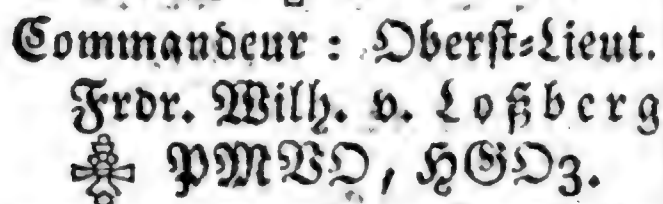 Commandeur: Oberst-Lieut.
Frdr. Wilh. v. Loßberg
PMVO, HGO3.